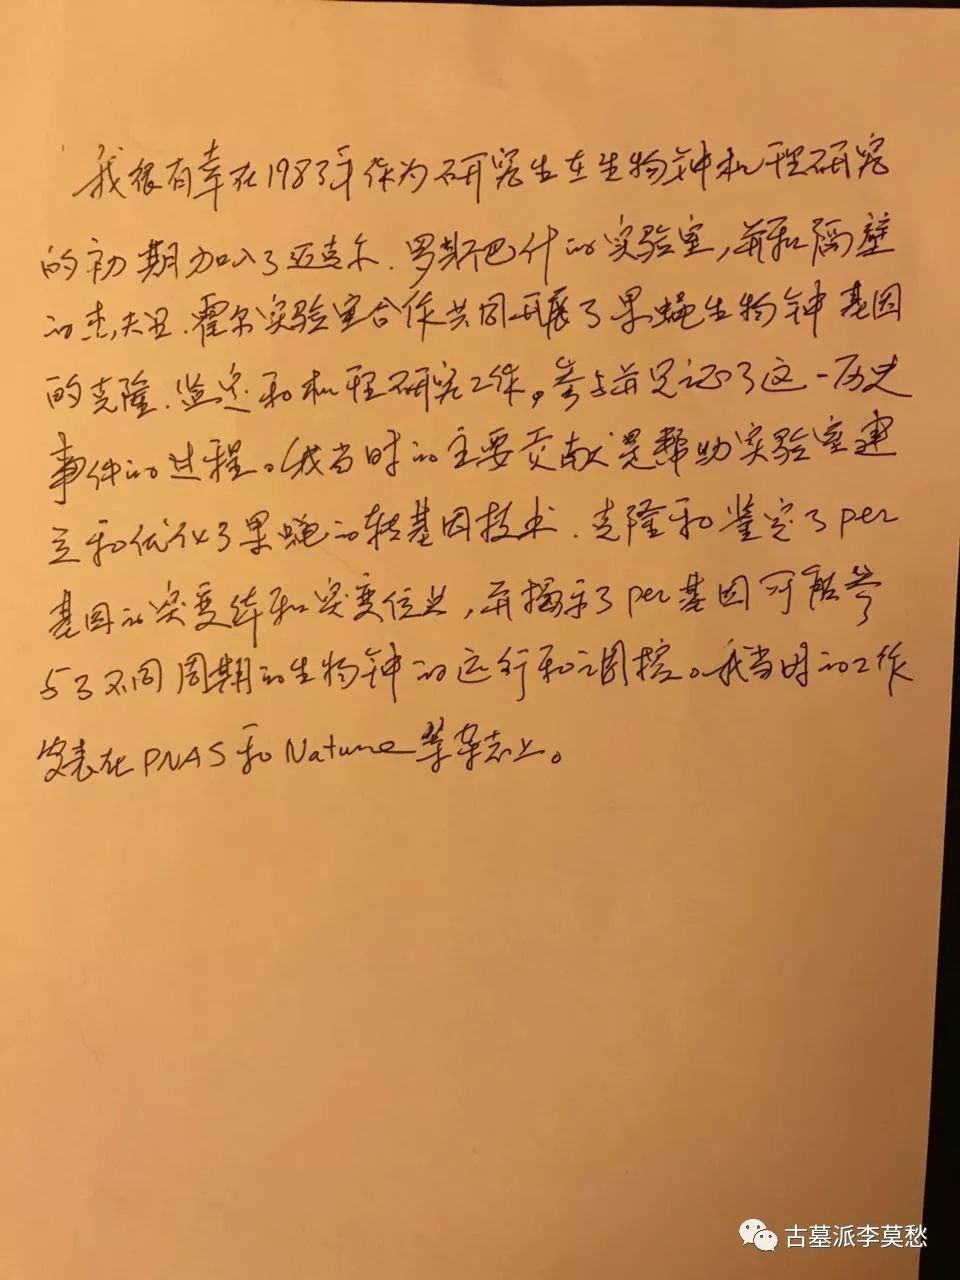 我很有幸在1983年作为研究生在生物钟机理研究
的初期加入了迈克尔.罗斯巴什的实验室,并和隔壁
的杰夫里.霍尔实验室合作共同开展了果蝇生物钟基因
的克隆.鉴定和机理研究工作,参与并见证了这一历史
事件的过程。我当时的主要贡献是帮助实验室建
立和优化了果蝇的转基因技术.克隆和鉴定了per
基因的突变体和突变位点,并揭示了per基因可能参
与了不同周期的生物钟的运行和调控。我当时的工作
发表在PNAS和Nature等杂志上。
古墓派李莫愁